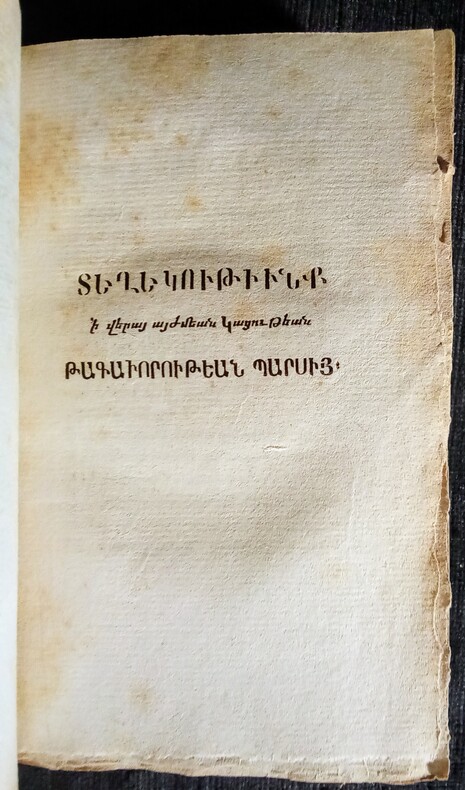 ՏԵՂԵԿՈՒԹԻՒՆՔ
ի վերայ այժմեան կացութեան
ԹԱԳԱՒՈՐՈՒԹԵԱՆ ՊԱՐՍԻՑ։